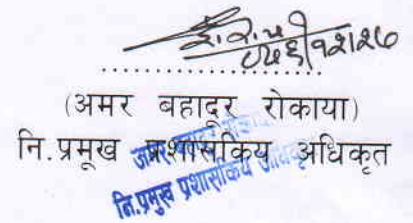 (अमर बहादुर रोकाया)
नि.प्रमुख प्रशासकिय अधिकृत
नि.प्रमुख प्रशासकिय